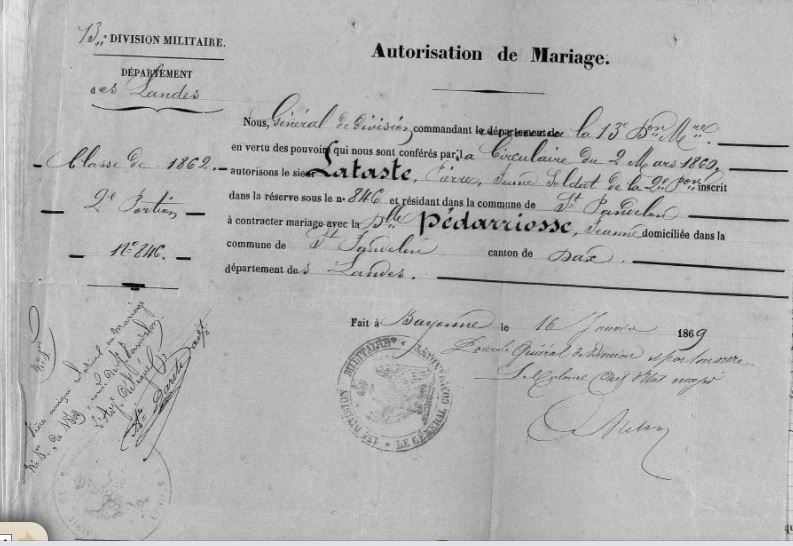 13e DIVISION MILITAIRE.
DÉPARTEMENT
des Landes
Classe de 1862.
2e Portion
N° 846.
Autorisation de Mariage.
Nous, Général de Division, commandant le département de la 13e Don Mre.
en vertu des pouvoirs qui nous sont conférés par la Circulaire du 2 Mars 1869,
autorisons le sieur Lataste, Pierre, Jeune Soldat de la 2e Pon inscrit
dans la réserve sous le n° 846 et résidant dans la commune de St Pandelon
à contracter mariage avec la Dlle Pédarriosse, Jeanne domiciliée dans la
commune de St Pandelon canton de Dax.
département des Landes.
Fait à Bayonne le 16 Janvier 1869
Pour le Général de Division et par son ordre
Le Colonel Chef d'Etat major
13e DIVISION MILITAIRE
LE GÉNÉRAL COMMANDANT
Pièce